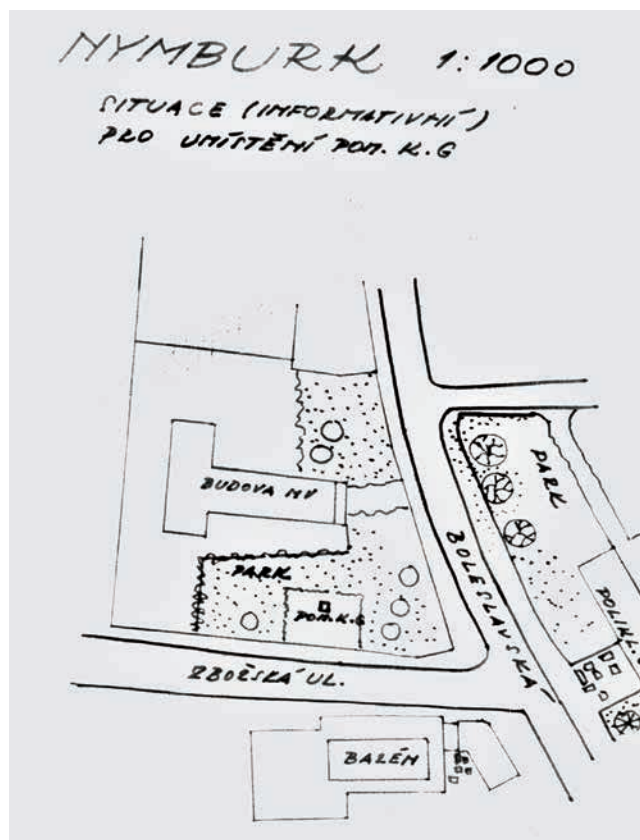 NYMBURK 1:1000
SITUACE (INFORMATIVNÍ)
PRO UMÍSTĚNÍ POM. K.G
BUDOVA MV
PARK
PARK
POM.K.G
BOLESLAVSKÁ
POLIKL.
ZBOŽSKÁ UL.
BAZÉN